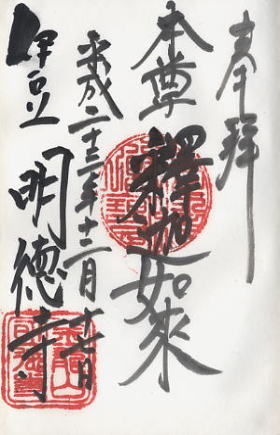 奉拝
本尊 釋迦如來
平成二十三年十二月十七日
伊豆 明徳寺